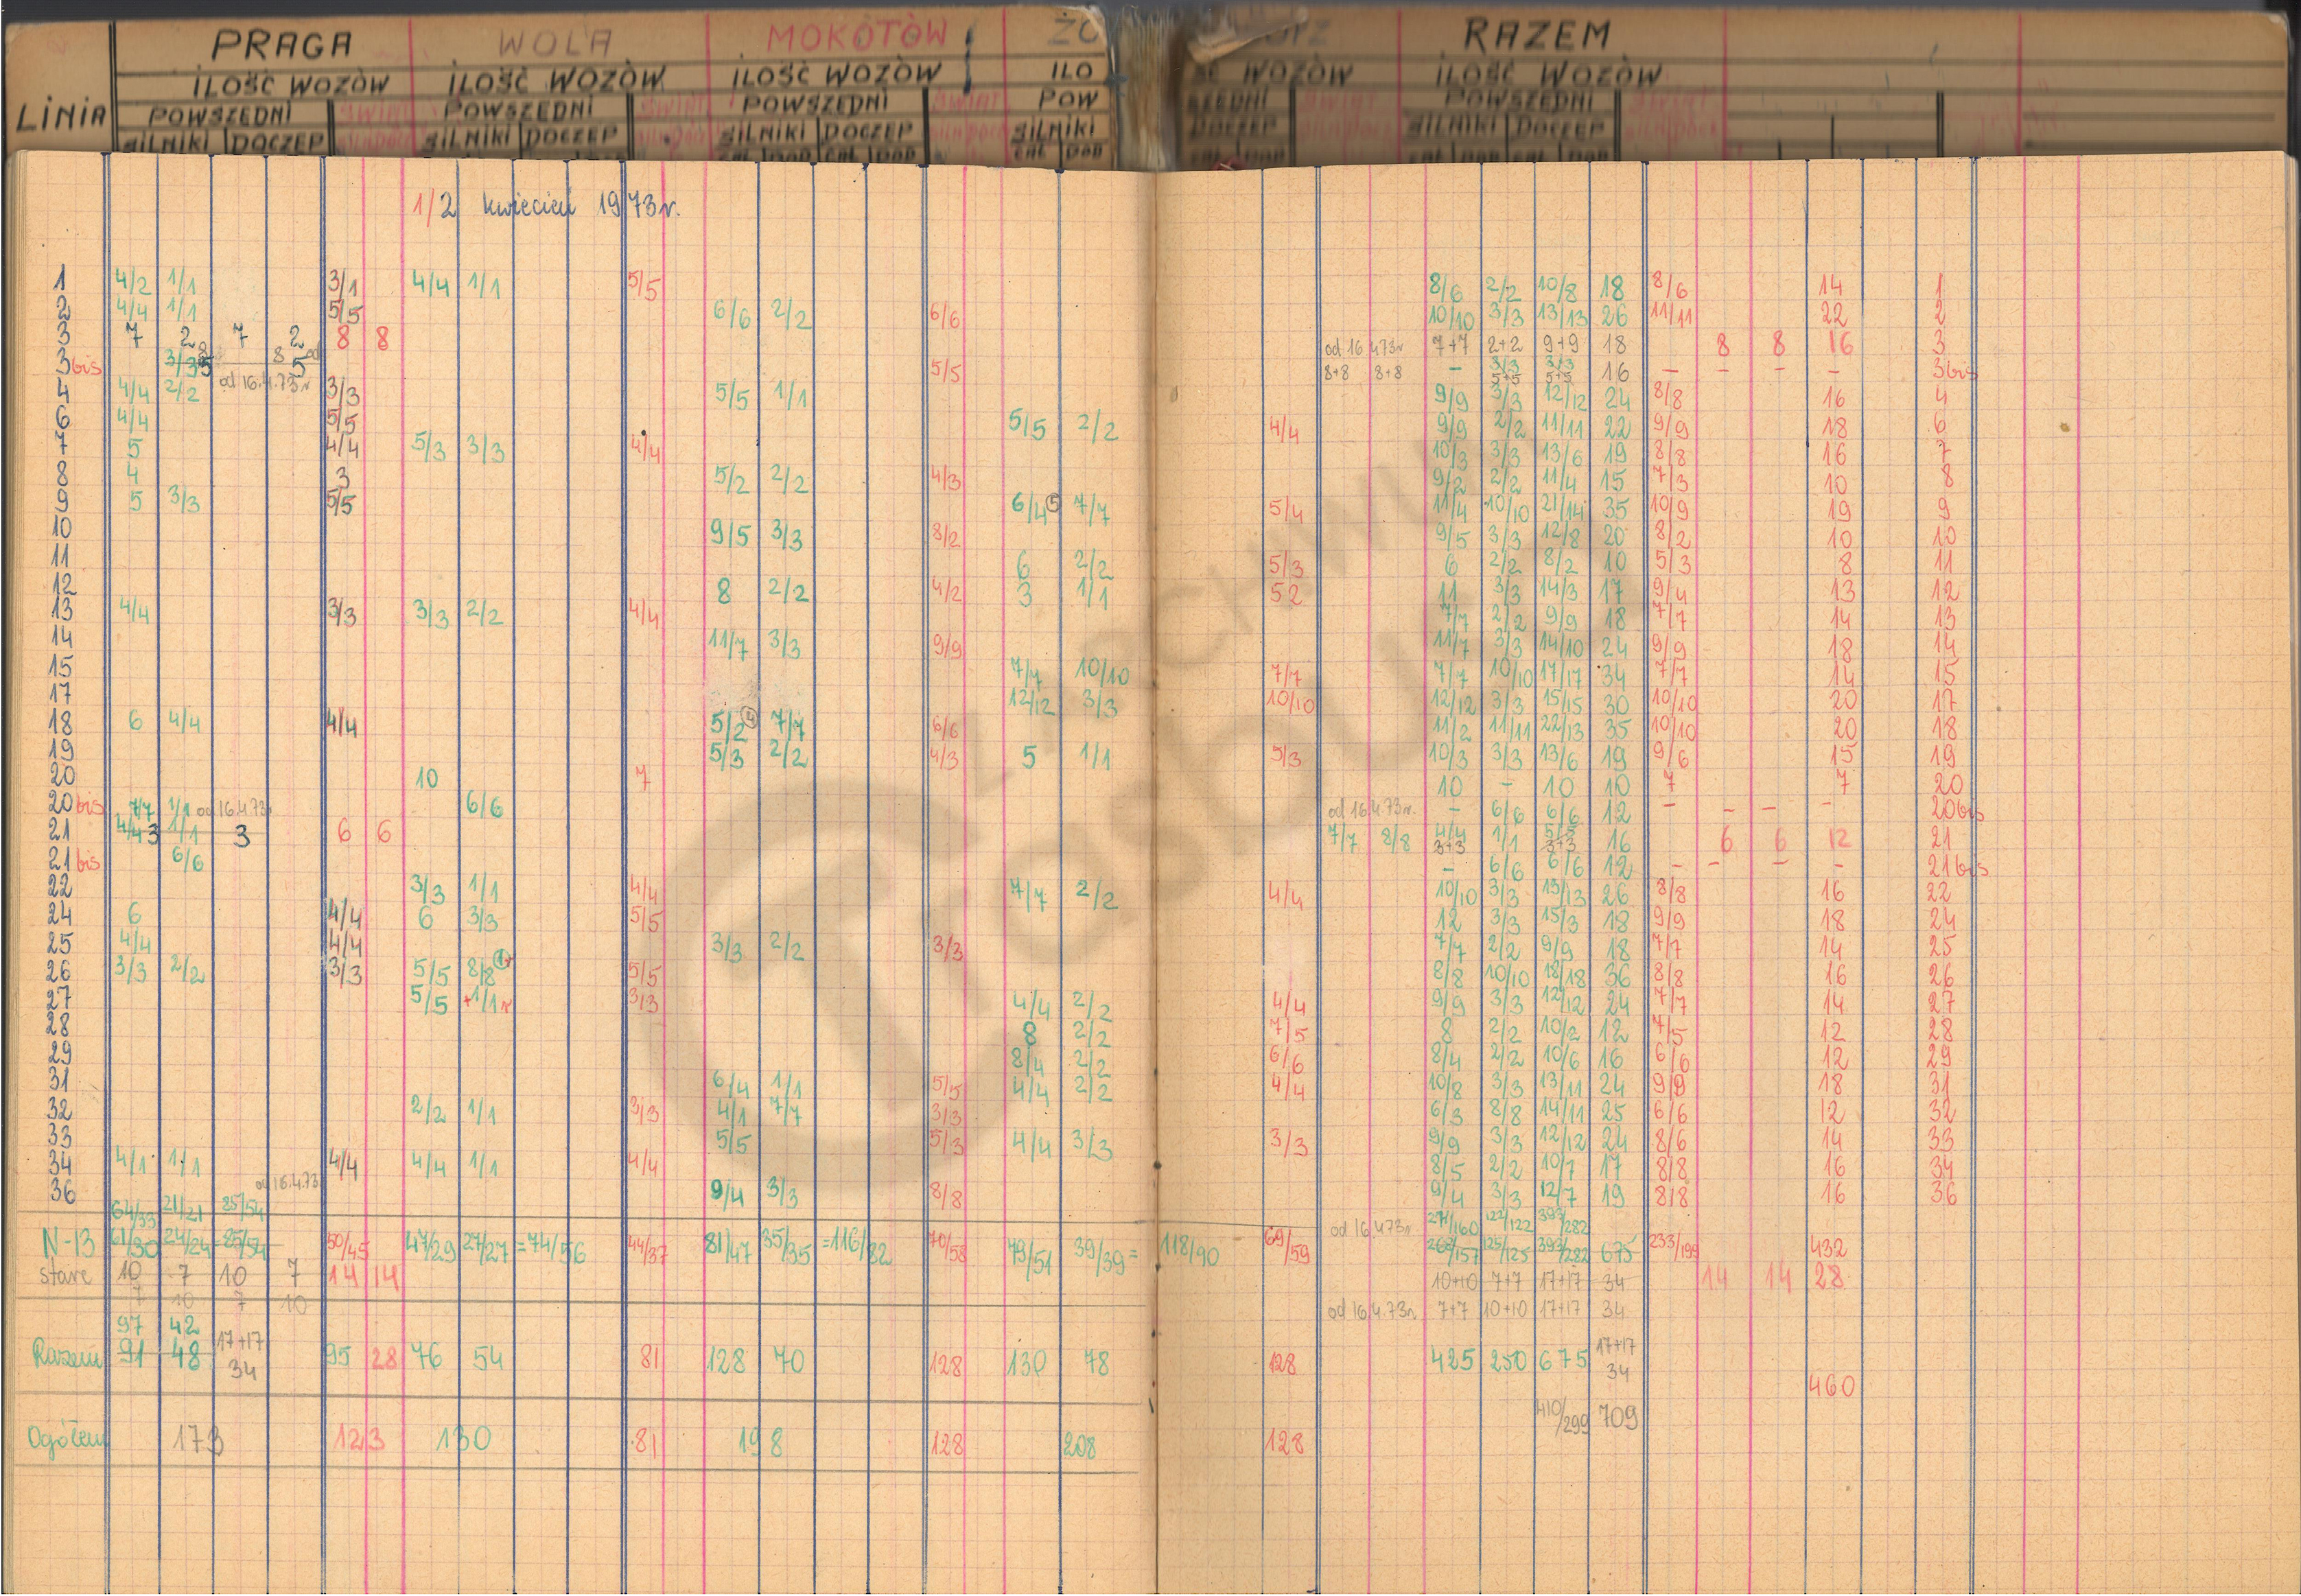 PRAGA WOLA MOKOTÓW ŻO RAZEM
ILOŚĆ WOZÓW ILOŚĆ WOZÓW ILOŚĆ WOZÓW ILO ŚĆ WOZÓW ILOŚĆ WOZÓW
LINIA POWSZEDNI ŚWIĄT POWSZEDNI ŚWIĄT POWSZEDNI ŚWIĄT POW SZEDNI ŚWIĄT POWSZEDNI ŚWIĄT
SILNIKI DOCZEP SILNIKI DOCZEP SILNIKI DOCZEP SILNIKI DOCZEP SILNIKI DOCZEP
1/2 kwiecień 1973r.
1 4/2 1/1 3/1 4/4 1/1 5/5 8/6 2/2 10/8 18 8/6 14 1
2 4/4 1/1 5/5 6/6 2/2 6/6 10/10 3/3 13/13 26 11/11 22 2
3 7 2 7 2 8 8 od 16.4.73r 7+7 2+2 9+9 18 8 8 16 3
3bis 3/3 5 8 5 od 16.4.73r 5/5 8+8 8+8 – 3/3 5+5 3/3 5+5 16 – – – – 3bis
4 4/4 2/2 3/3 5/5 1/1 9/9 3/3 12/12 24 8/8 16 4
6 4/4 5/5 5/5 2/2 4/4 9/9 2/2 11/11 22 9/9 18 6
7 5 4/4 5/3 3/3 4/4 10/3 3/3 13/6 19 8/8 16 7
8 4 3 5/2 2/2 4/3 9/2 2/2 11/4 15 7/3 10 8
9 5 3/3 5/5 6/4 5 7/7 5/4 11/4 10/10 21/14 35 10/9 19 9
10 9/5 3/3 8/2 9/5 3/3 12/8 20 8/2 10 10
11 6 2/2 5/3 6 2/2 8/2 10 5/3 8 11
12 8 2/2 4/2 3 1/1 52 11 3/3 14/3 17 9/4 13 12
13 4/4 3/3 3/3 2/2 4/4 7/7 2/2 9/9 18 7/7 14 13
14 11/7 3/3 9/9 11/7 3/3 14/10 24 9/9 18 14
15 7/7 10/10 7/7 7/7 10/10 17/17 34 7/7 14 15
17 12/12 3/3 10/10 12/12 3/3 15/15 30 10/10 20 17
18 6 4/4 4/4 5/2 7/7 6/6 11/2 11/11 22/13 35 10/10 20 18
19 5/3 2/2 4/3 5 1/1 5/3 10/3 3/3 13/6 19 9/6 15 19
20 10 7 10 – 10 10 7 7 20
20bis 7/7 1/1 od 16.4.73r 6/6 od 16.4.73r. – 6/6 6/6 12 – – – – 20bis
21 4/4 3 1/1 3 6 6 7/7 8/8 4/4 3+3 1/1 5/5 3+3 16 6 6 12 21
21bis 6/6 – 6/6 6/6 12 – – – – 21bis
22 3/3 1/1 4/4 7/7 2/2 4/4 10/10 3/3 13/13 26 8/8 16 22
24 6 4/4 6 3/3 5/5 12 3/3 15/3 18 9/9 18 24
25 4/4 4/4 3/3 2/2 3/3 7/7 2/2 9/9 18 7/7 14 25
26 3/3 2/2 3/3 5/5 8/8 5/5 8/8 10/10 18/18 36 8/8 16 26
27 5/5 +1/1r 3/3 4/4 2/2 4/4 9/9 3/3 12/12 24 7/7 14 27
28 8 2/2 7/5 8 2/2 10/2 12 7/5 12 28
29 8/4 2/2 6/6 8/4 2/2 10/6 16 6/6 12 29
31 6/4 1/1 5/5 4/4 2/2 4/4 10/8 3/3 13/11 24 9/9 18 31
32 2/2 1/1 3/3 4/1 7/7 3/3 6/3 8/8 14/11 25 6/6 12 32
33 5/5 5/3 4/4 3/3 3/3 9/9 3/3 12/12 24 8/6 14 33
34 4/1 1/1 4/4 4/4 1/1 4/4 8/5 2/2 10/7 17 8/8 16 34
36 od 16.4.73 9/4 3/3 8/8 9/4 3/3 12/7 19 8/8 16 36
64/33 21/21 85/54 od 16.4.73r 271/160 122/122 393/282
N-13 61/30 24/24 =85/54 50/45 47/29 27/27 =74/56 44/37 81/47 35/35 =116/82 70/58 79/51 39/39= 118/90 69/59 268/157 125/125 393/282 675 233/199 432
stare 10 7 10 7 14 14 10+10 7+7 17+17 34 14 14 28
7 10 7 10 od 16.4.73r. 7+7 10+10 17+17 34
97 42 17+17 17+17
Razem 91 48 34 95 28 76 54 81 128 70 128 130 78 128 425 250 675 34
460
410/299 709
Ogółem 173 123 130 81 198 128 208 128